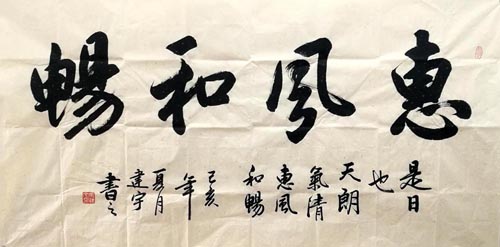 惠風和暢
是日
也
天朗
氣清
惠風
和暢
己亥
年
夏月
建宇
書之